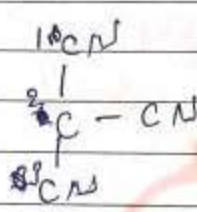 1 CN
|
2 C - CN
|
3 CN